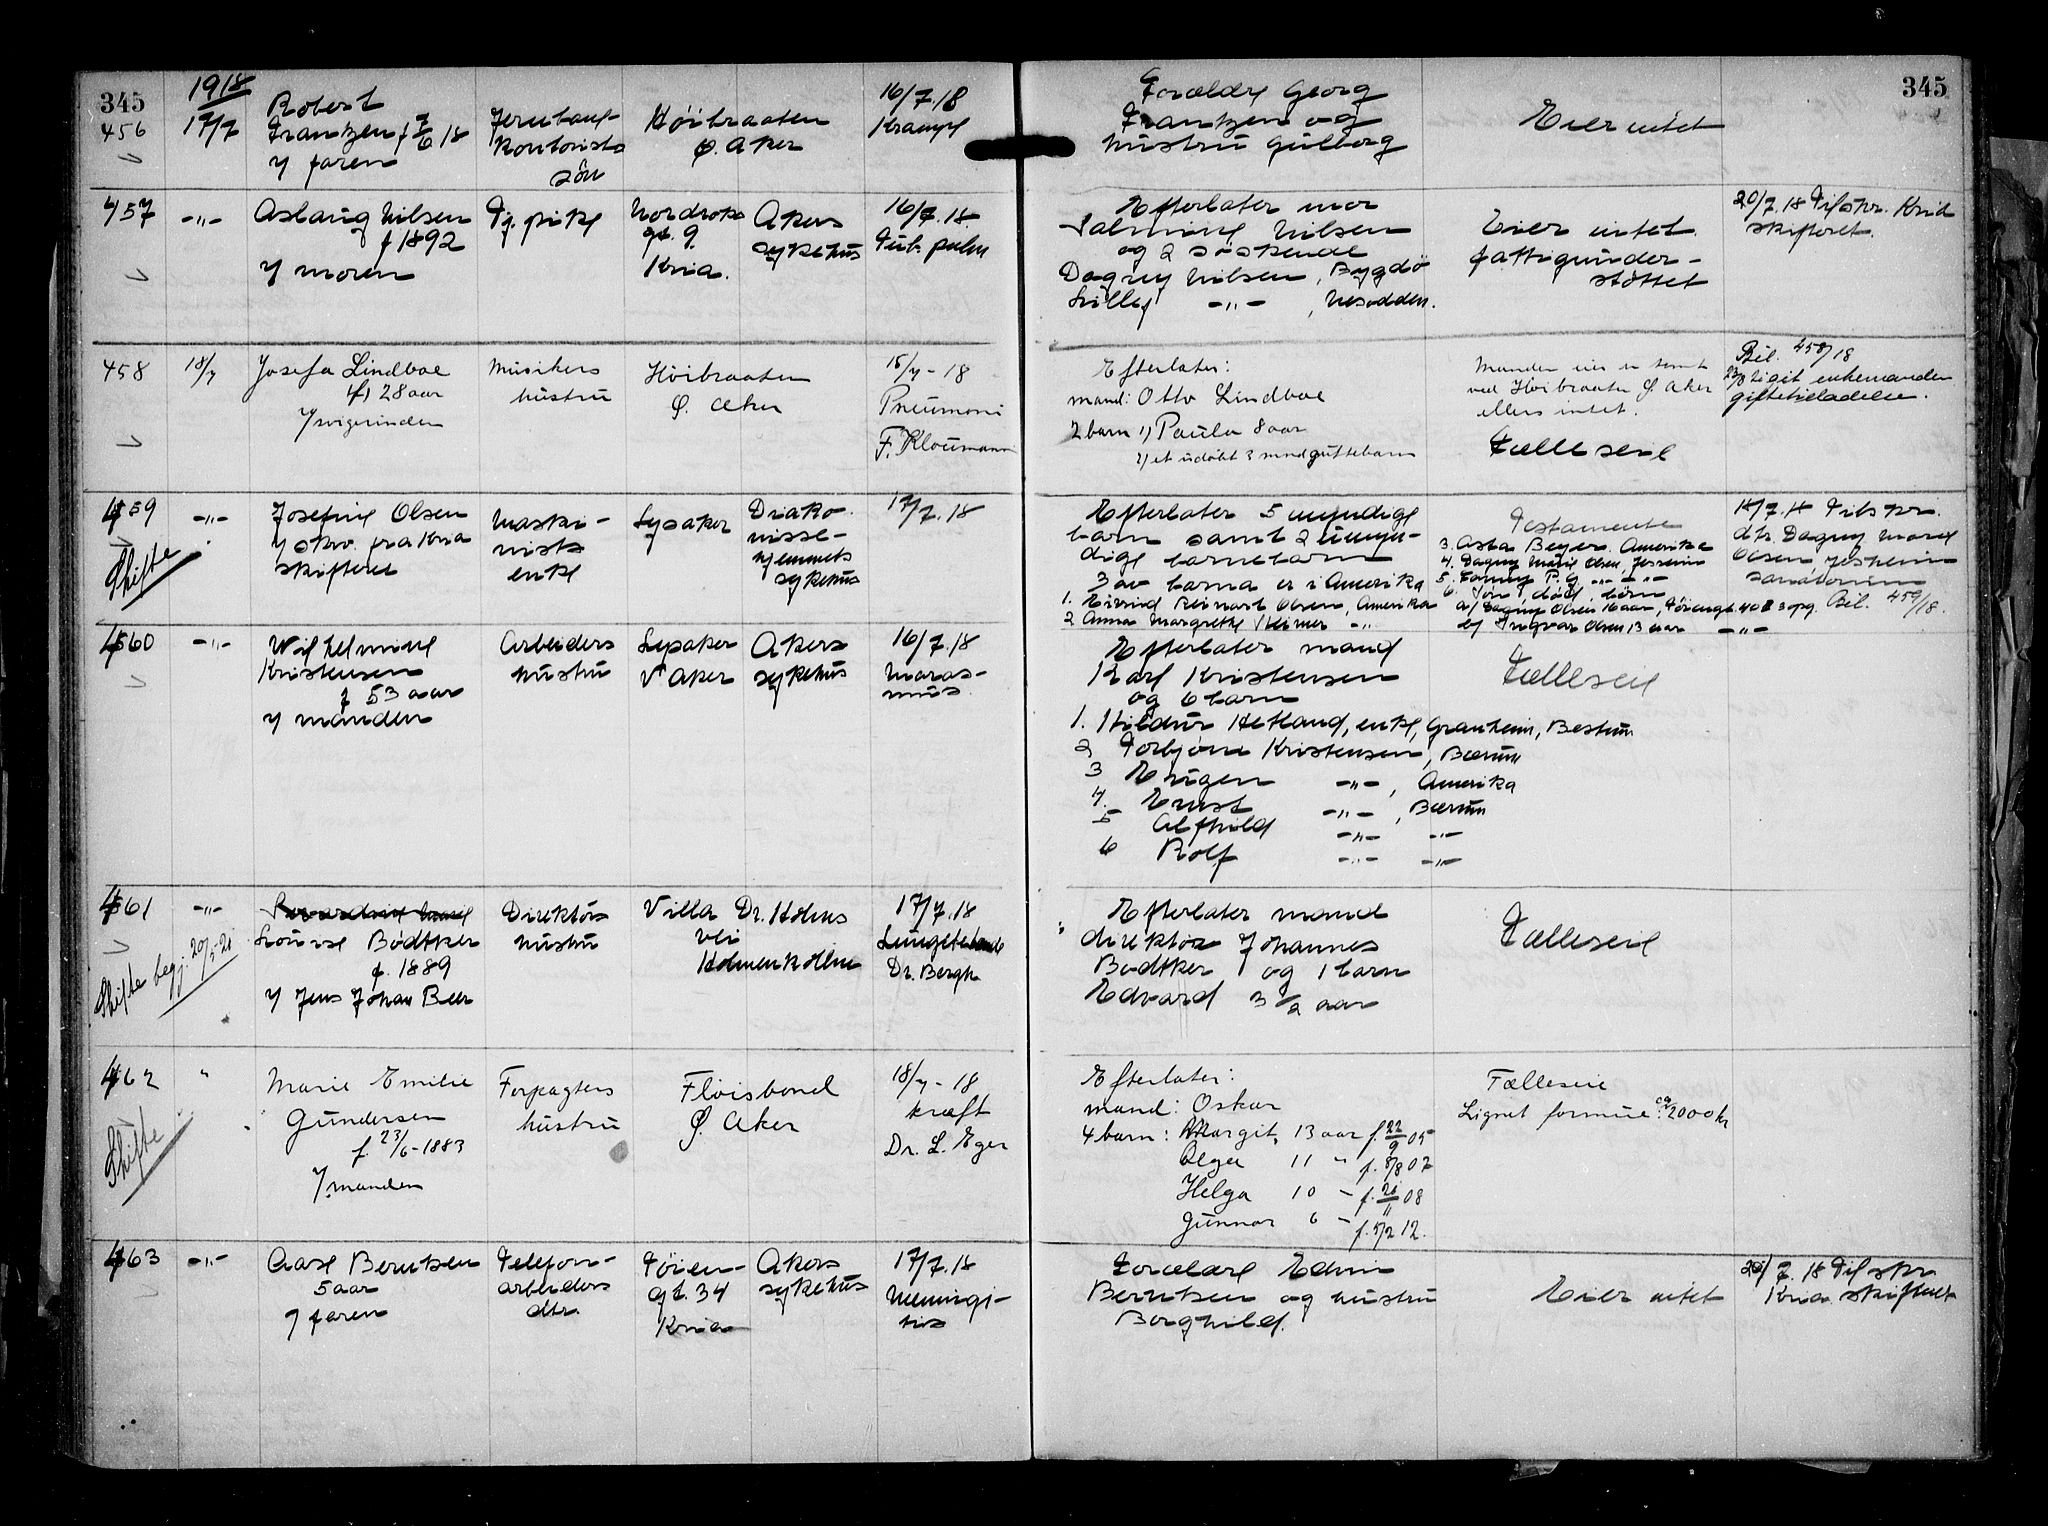 345
1918
456
17/7
Robert
Frantzen f 7/6 18
y faren
Jernbane-
kontorists
sön
Höibraaten
Ø. Aker
16/7.18
Krampe
Forældre Georg
Frantzen og
hustru Gulborg
Eier intet
345
457
-"-
Aslaug Nilsen
f 1892
y moren
Tj. pike
Nordraks
gt. 9
Kria.
Akers
sykehus
16/7.18
Tub. pulm
Efterlater mor
Nilsen
og 2 söskende
Dagny Nilsen, Bygdö
-"-, Nesodden.
Eier intet
fattigunder-
stöttet
20/7.18 Tilskr. Kria
skifteret.
458
18/7
Josefa Lindboe
28 aar
Svigerinden
Musikers
hustru
Höibraaten
Ø. Aker
15/7-18
Pneumoni
F. Kloumann
Efterlater:
mand: Otto Lindboe
2 barn 1) Paula 8 aar
2) et udöbt 3 mnd guttebarn
Manden eier en tomt
ved Höibraaten Ø Aker
ellers intet.
Fælleseie
Bil. 458/18
git enkemanden
giftetilladelse.
459
-"-
Skifte
Josefine Olsen
y skrv. fra Kria
skifteret
Maski-
nists
enke
Lysaker
Diako-
nisse-
hjemmets
sykehus
17/7.18
Efterlater 5 myndige
barn samt 2 umyn-
dige barnebarn
3 av barna er i Amerika
1. Eivind Reinart Olsen, Amerika
2 Anna Margrethe Heimer -"-
Testamente
3. Asta Beyer. Amerika
4. Dagny Marie Olsen, Jessheim
5. Fanny P. G. -"- -"-
6. Jon, död, børn
a/ Dagny Olsen 16 aar, Töiengt. 40 B 3 opg.
b/ Ingvar Olsen 13 aar -"-
18/7.18 Tilskr.
dtr. Dagny Marie
Olsen, Jessheim
sanatorium
Bil. 459/18.
460
-"-
Wilhelmine
Kristensen
f 53 aar
y manden
Arbeiders
hustru
Lysaker
V Aker
Akers
sykehus
16/7.18
Maras-
mus.
Efterlater mand
Karl Kristensen
og 6 barn
Fælleseie
1. Hildur Hetland, enke, Granheim, Bestum
2 Torbjörn Kristensen, Bærum
3 Eugen -"-, Amerika
4. Ernst -"-, Bærum
5 Alfhild -"- -"-
6 Rolf -"- -"-
461
-"-
Skifte begj. 20/5-21
Louise Bødtker
f. 1889
y Jens Johan Beer
Direktörs
hustru
Villa Dr. Holms
vei
Holmenkollen
17/7.18
Dr. Bergh
Efterlater mand
direktör Johannes
Bødtker og 1 barn
Edvard 3 1/2 aar
Fælleseie
462
"
Skifte
Marie Emilie
Gundersen
f. 23/6-1883
y. manden
Forpagters
hustru
Flöisbond
Ø. Aker
18/7-18
kræft
Dr. L. Eger
Efterlater:
mand: Oskar
4 barn: Margit, 13 aar f. 22/9 05
Olga 11 " f. 8/8 07
Helga 10 - f. 21/11 08
Gunnar 6 - f. 5/2 12.
Fælleseie
Lignet formue ca 2000 kr
463
-"-
Aase Berntsen
5 aar
y faren
Telefon-
arbeiders
dtr.
Töien-
gt. 34
Kria
Akers
sykehus
17/7.18
Meningi-
tis
Forældre Edvin
Berntsen og hustru
Borghild.
Eier intet
20/7.18 Tilskr
Kria skifteret